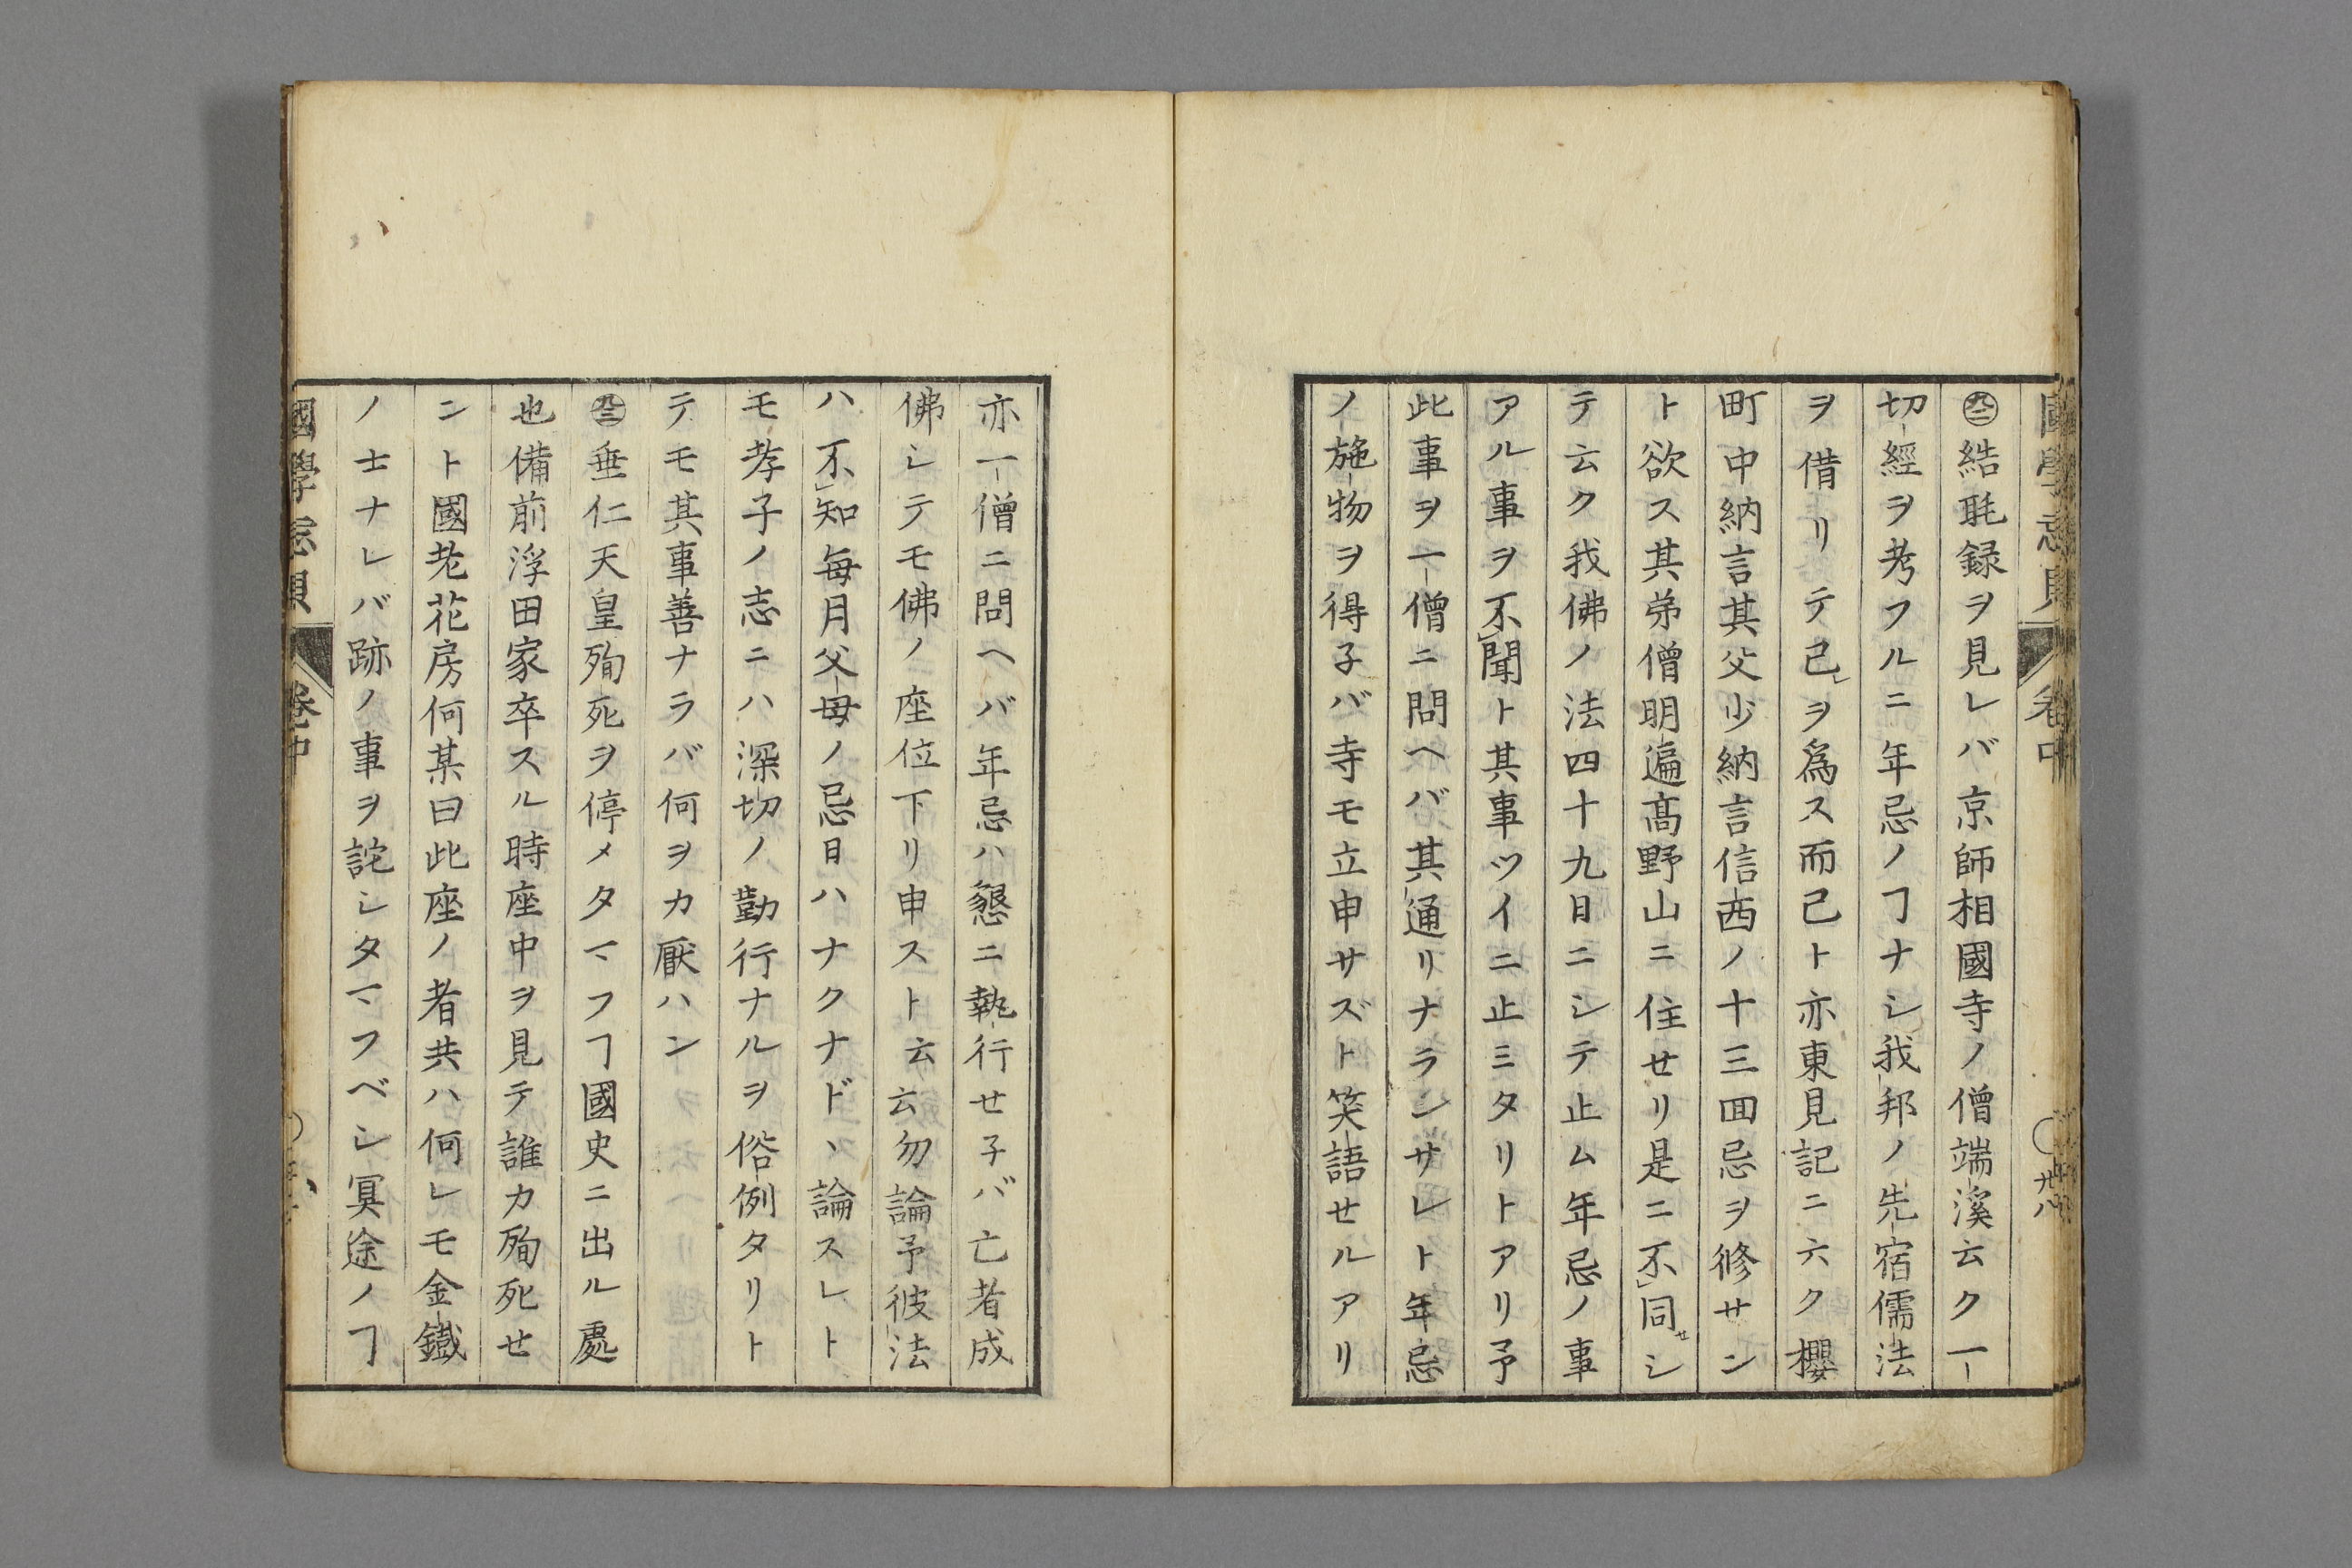 ㊈㊁結毦録ヲ見レバ京師相國寺ノ僧端溪云ク一
切經ヲ考フルニ年忌ノヿナシ我邦ノ先宿儒法
ヲ借リテ己レヲ爲ス而已ト亦東見記ニ六ク櫻
町中納言其父少納言信西ノ十三回忌ヲ修サン
ト欲ス其弟僧明遍髙野山ニ住せリ是ニ不レ同せシ
テ云ク我佛ノ法四十九日ニシテ止ム年忌ノ事
アル事ヲ不レ聞ト其事ツイニ止ミタリトアリ予
此事ヲ一僧ニ問ヘバ其通リナランサレト年忌
ノ施物ヲ得子バ寺モ立申サズト笑語せルアリ
亦一僧ニ問ヘバ年忌ハ懇ニ執行せ子バ亡者成
佛シテモ佛ノ座位下リ申スト云云勿論予彼法
ハ不レ知毎月父母ノ忌日ハナクナド丶論スレト
モ孝子ノ志ニハ深切ノ勤行ナルヲ俗例タリト
テモ其事善ナラバ何ヲカ厭ハン
㊈㊂垂仁天皇殉死ヲ停メタマフヿ國史ニ出ル處
也備前浮田家卒スル時座中ヲ見テ誰カ殉死せ
ント國老花房何某曰此座ノ者共ハ何レモ金鐵
ノ士ナレバ跡ノ事ヲ詫シタマフベシ冥途ノヿ
國學忘貝 卷中